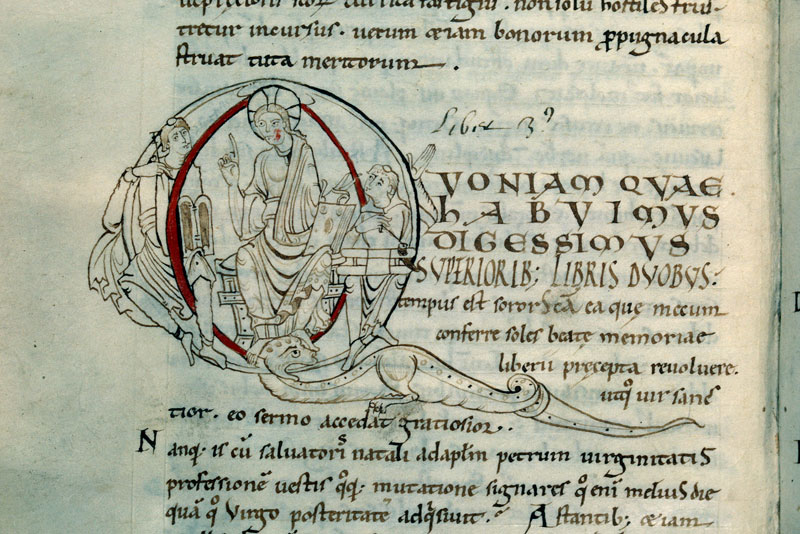 tretur incursus. uerum &iam bonorum ꝓpugnacula
struat tuta meritorum.
Liber 3⁹
QVONIAM QVAE
hABVIMVS
DIGESSIMVS
SVPERIORIB; LIBRIS DVOBVS:
tempus est soror scā ea que mecum
conferre soles beate memoriae
liberii p̄cepta reuoluere.
utq̄ uir sanc
tior. eo sermo accedat gratiosior.
Nanq. is cū saluatoris natali ad apl̄m petrum uirginitatis
professionē uestis qq̄. mutatione signares q̄ enī melius die
quā q̄ Virgo posteritatē adq̄siuit. Astantib; &iam